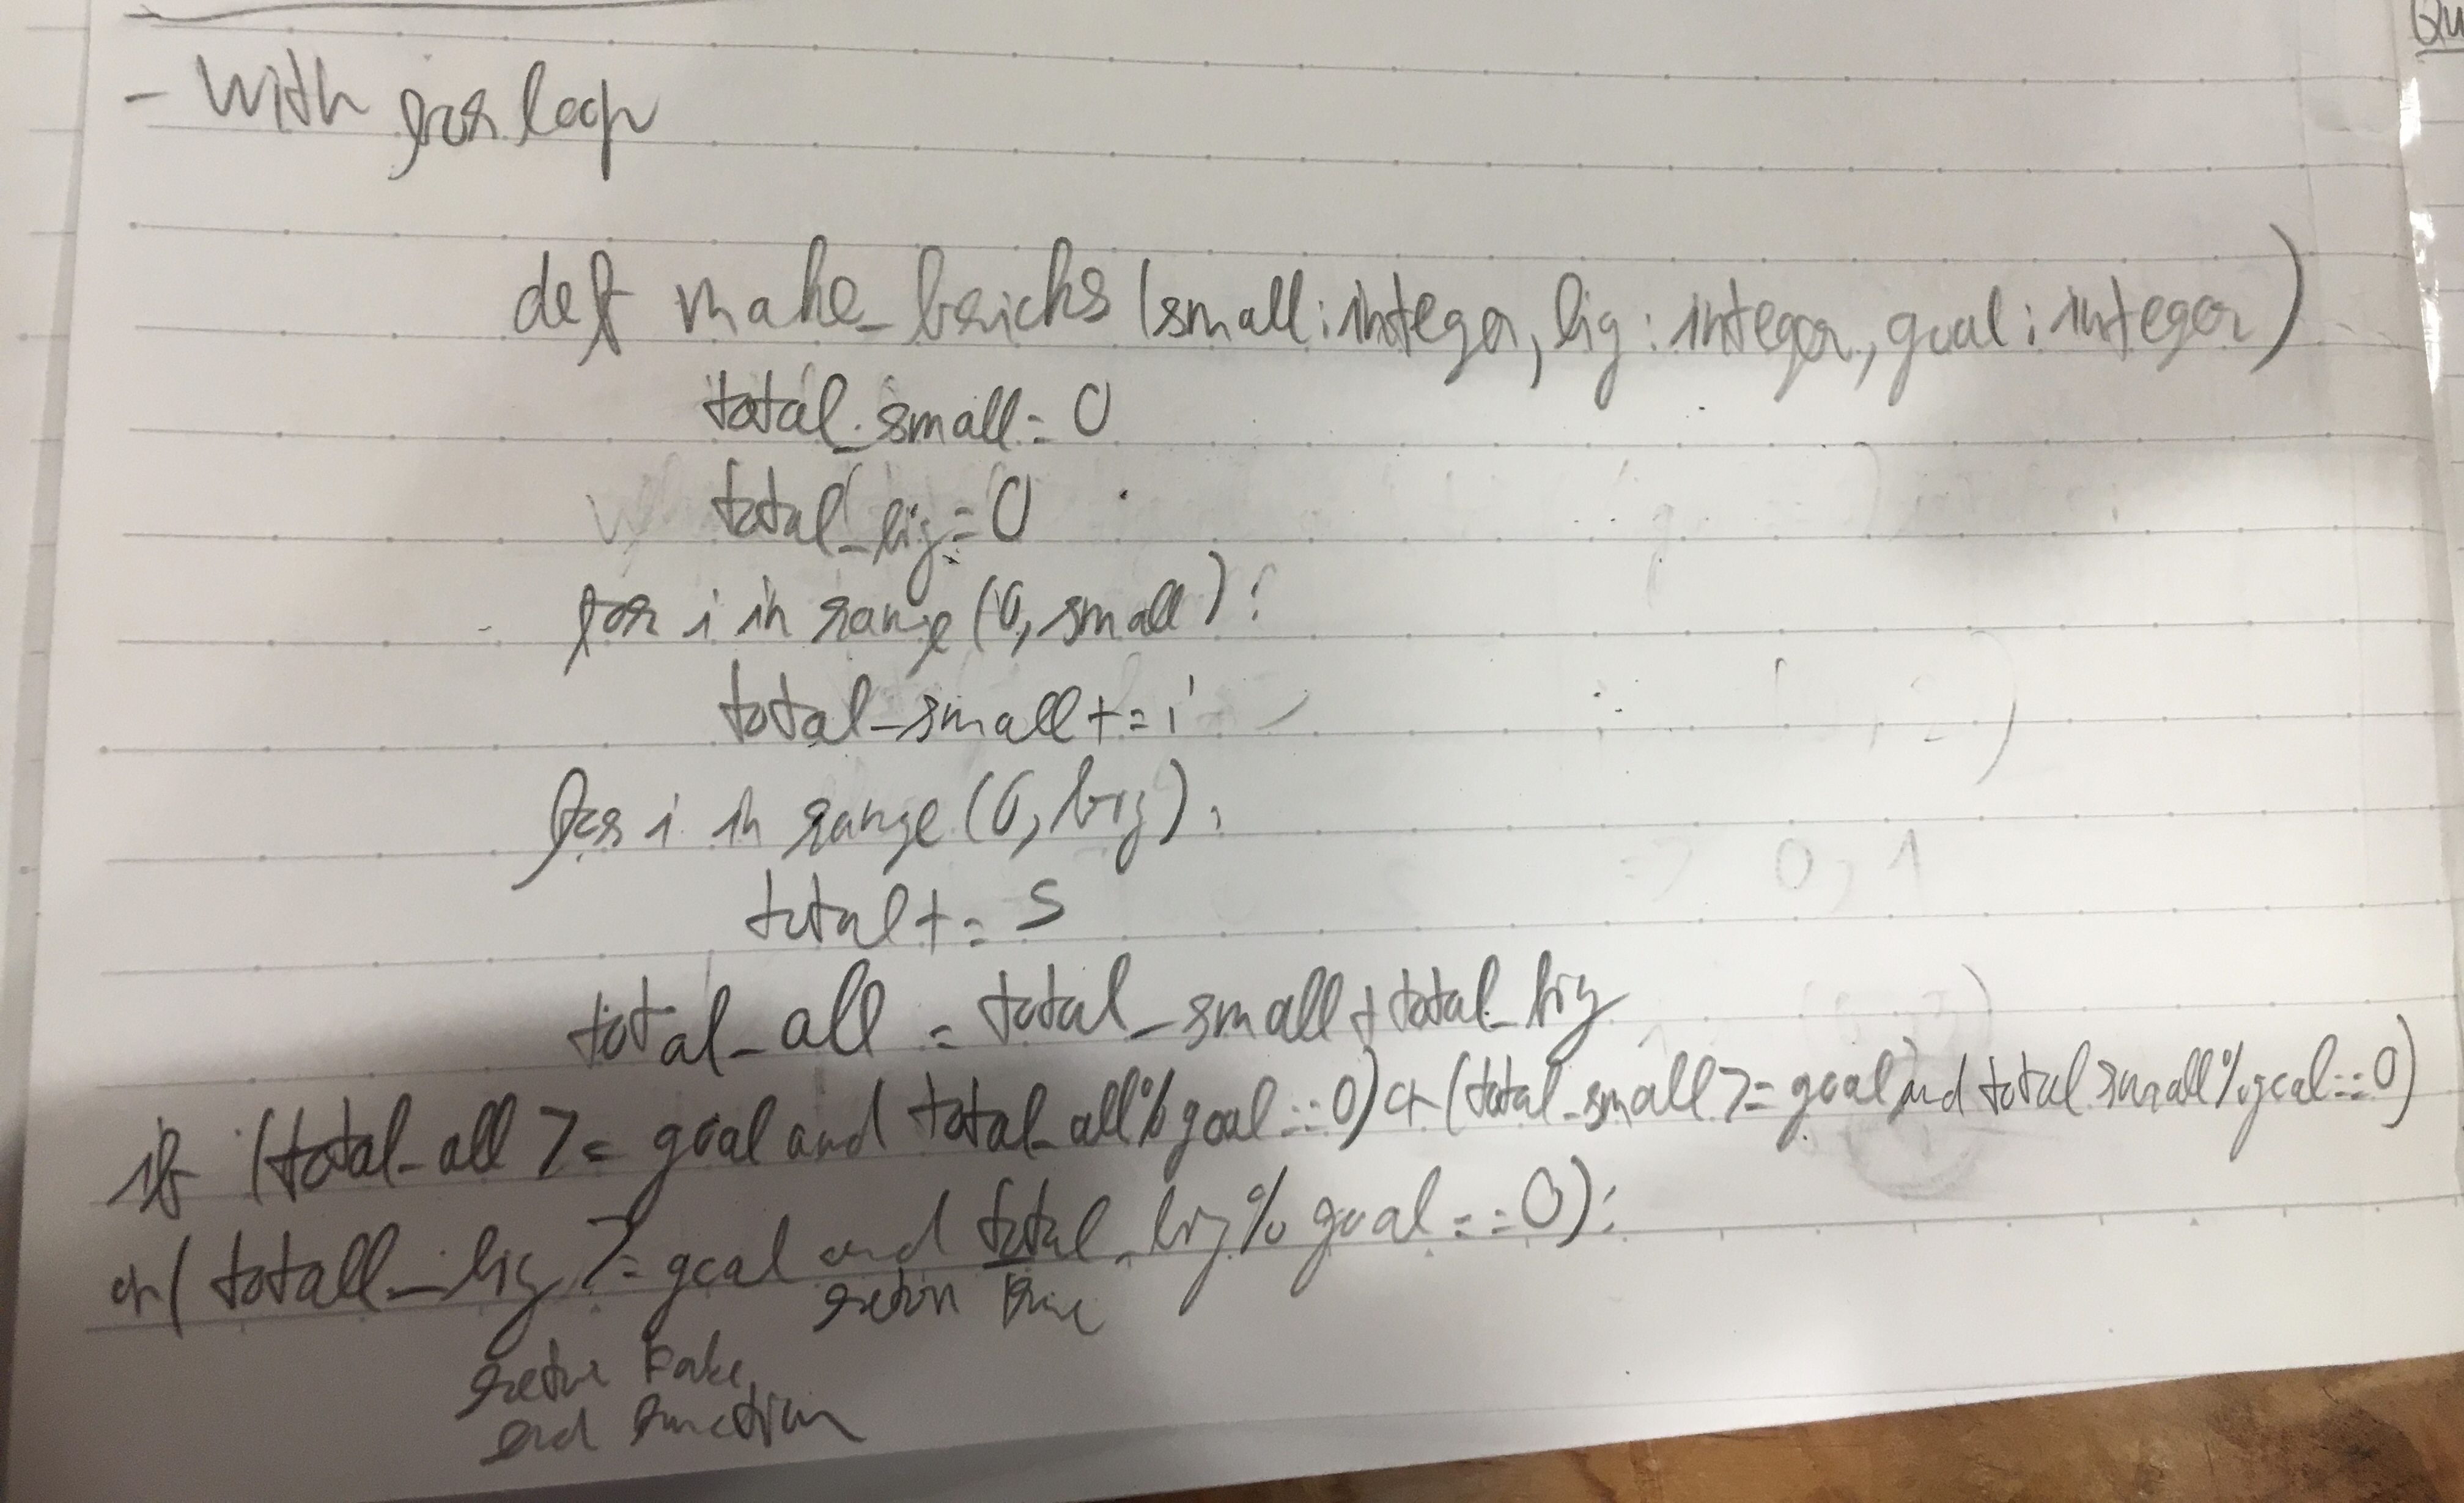 Qu
- With for loop
def make_bricks (small: integer, big: integer, goal: integer)
total_small = 0
total_big = 0
for i in range (0, small):
total_small += i
for i in range (0, big):
total += 5
total_all = total_small + total_big
if (total_all >= goal and total_all % goal == 0) or (total_small >= goal and total small % goal == 0)
or ( totall_big >= goal and total_big % goal == 0):
return True
retur False
end function